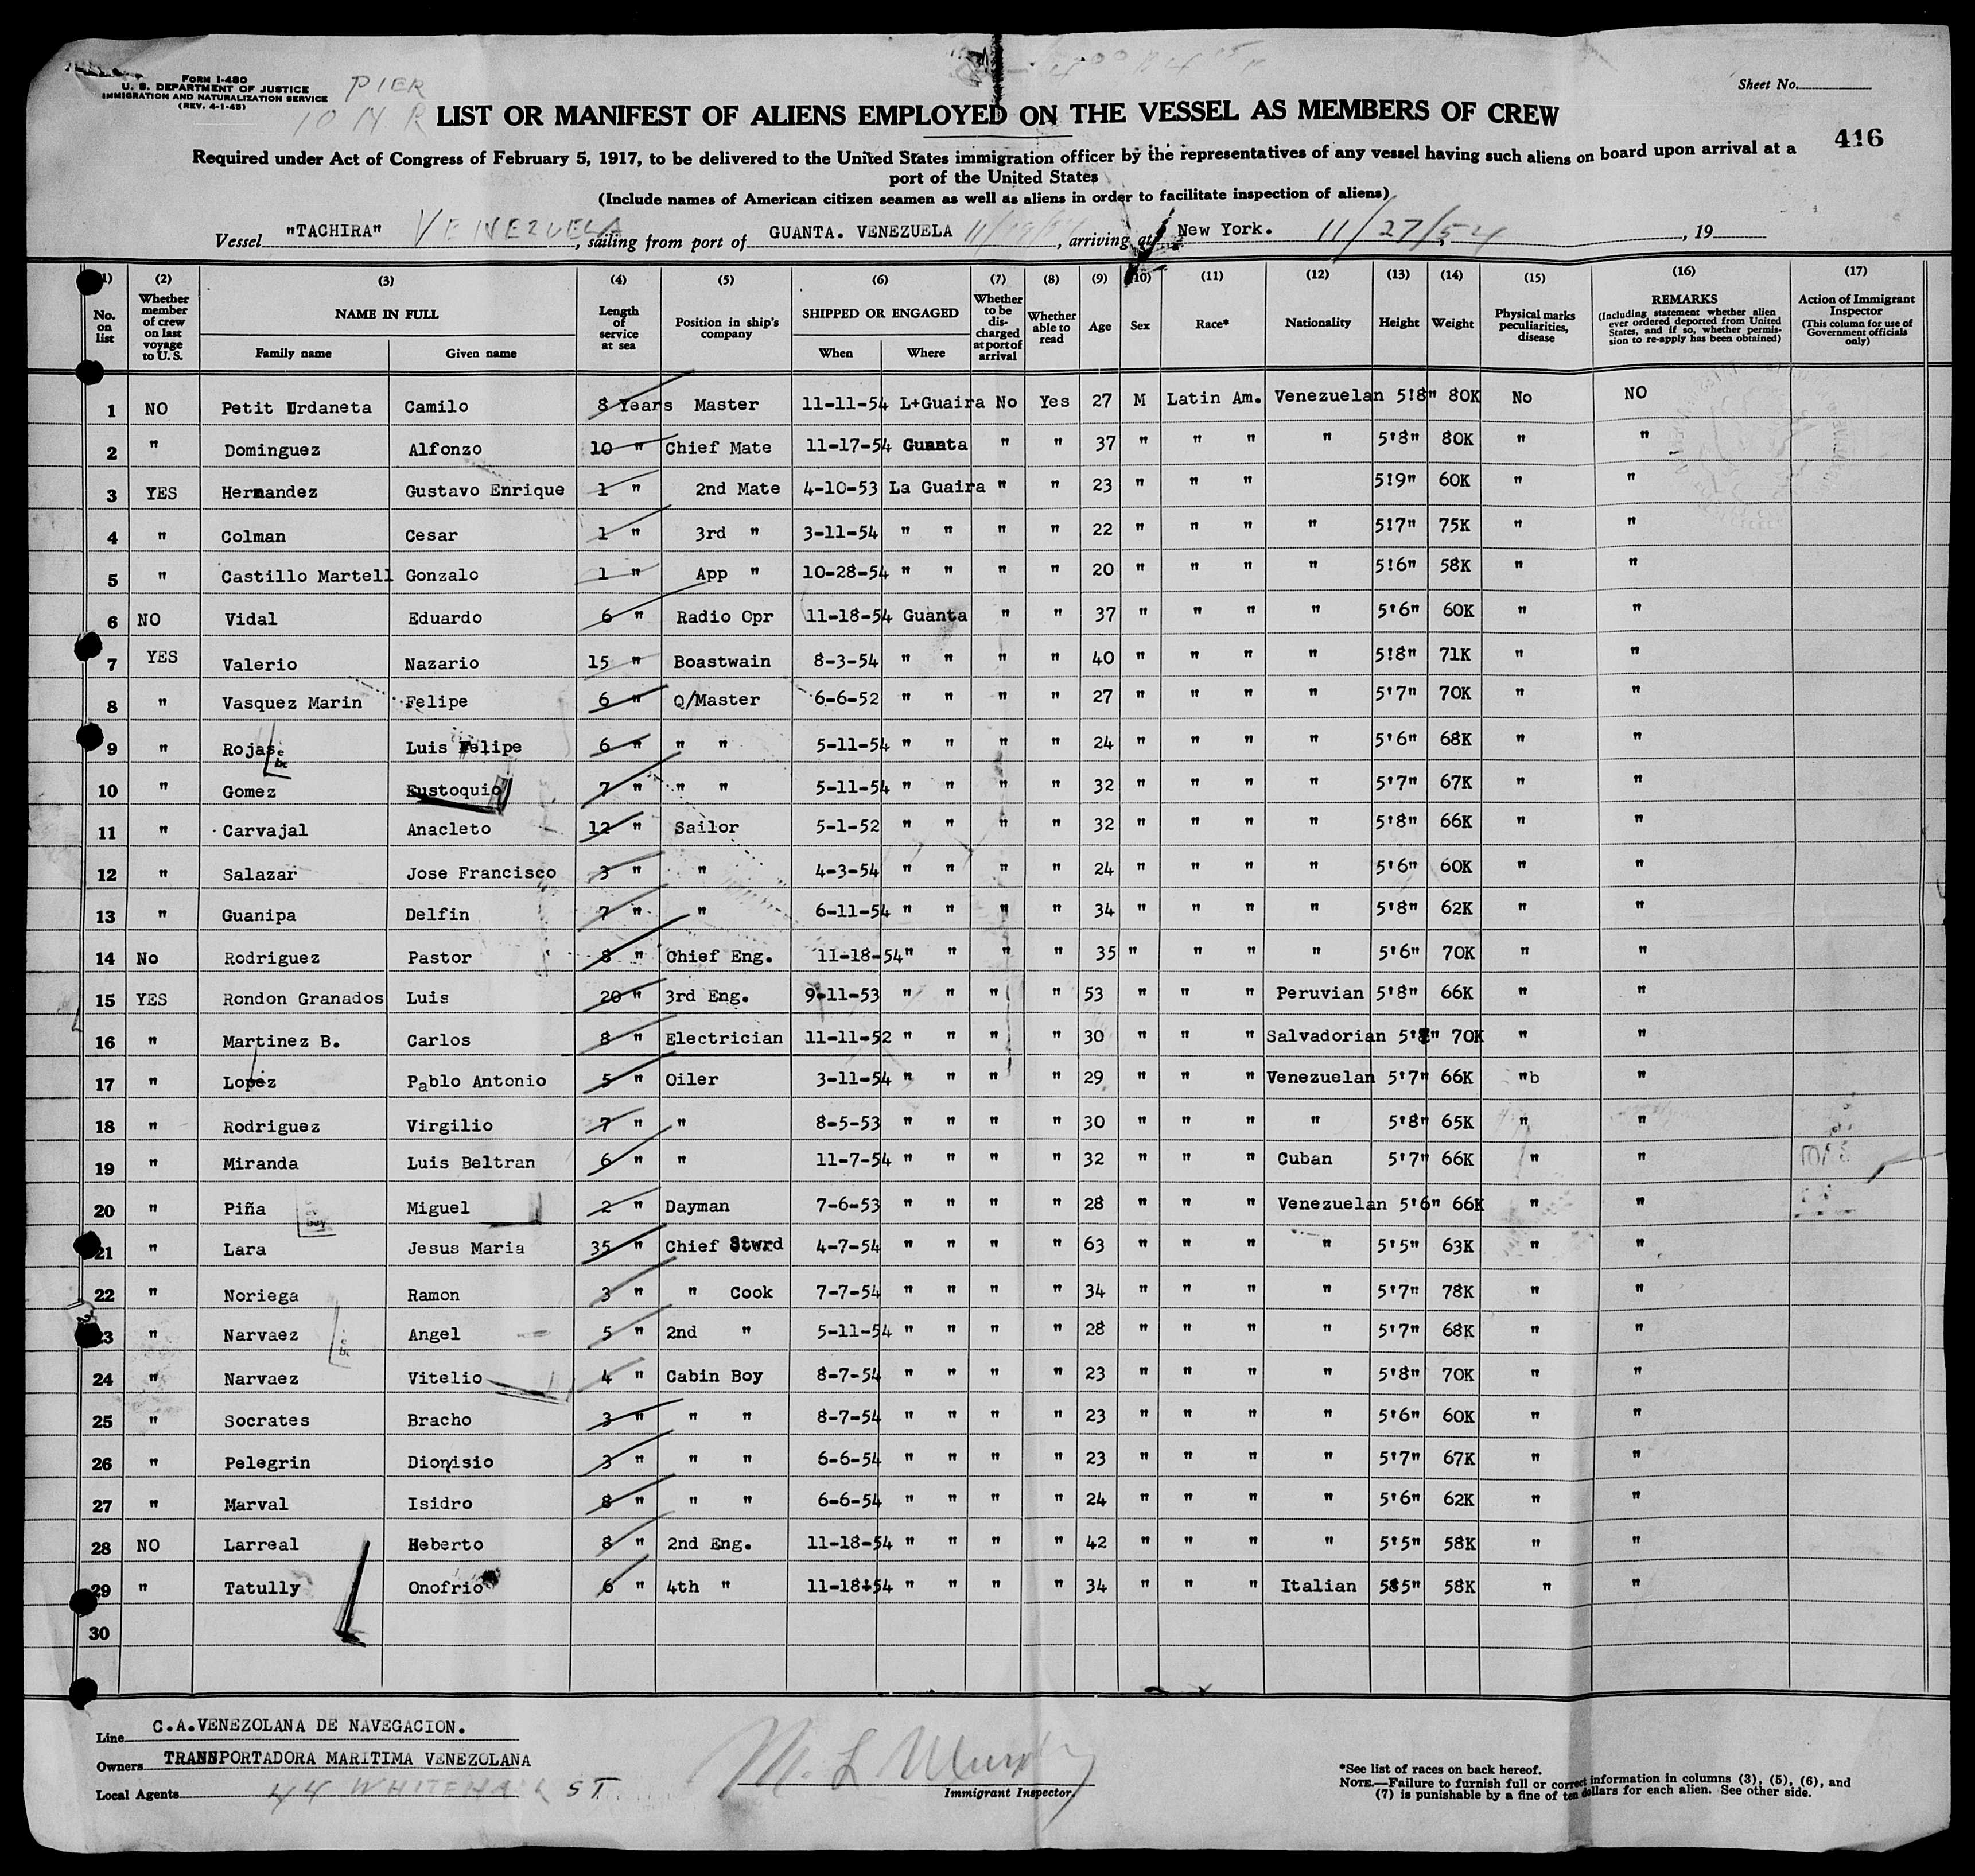 FORM I-480
U. S. DEPARTMENT OF JUSTICE
IMMIGRATION AND NATURALIZATION SERVICE
(REV. 4-1-45)
PIER
10 N R
Sheet No.
LIST OR MANIFEST OF ALIENS EMPLOYED ON THE VESSEL AS MEMBERS OF CREW
416
Required under Act of Congress of February 5, 1917, to be delivered to the United States immigration officer by the representatives of any vessel having such aliens on board upon arrival at a
port of the United States
(Include names of American citizen seamen as well as aliens in order to facilitate inspection of aliens)
Vessel "TACHIRA" VENEZUELA, sailing from port of GUANTA. VENEZUELA, arriving at New York. 11/27/54, 19
(1) (2) (3) (4) (5) (6) (7) (8) (9) (10) (11) (12) (13) (14) (15) (16) (17)
No. on list
Whether member of crew on last voyage to U. S.
NAME IN FULL
Family name Given name
Length of service at sea
Position in ship's company
SHIPPED OR ENGAGED
When Where
Whether to be discharged at port of arrival
Whether able to read
Age
Sex
Race*
Nationality
Height
Weight
Physical marks peculiarities, disease
REMARKS
(Including statement whether alien ever ordered deported from United States, and if so, whether permission to re-apply has been obtained)
Action of Immigrant Inspector
(This column for use of Government officials only)
1 NO Petit Urdaneta Camilo 8 Years Master 11-11-54 L+Guaira No Yes 27 M Latin Am. Venezuelan 5!8" 80K No NO
2 " Dominguez Alfonzo 10 " Chief Mate 11-17-54 Guanta " " 37 " " " " 5'8" 80K " "
3 YES Hernandez Gustavo Enrique 1 " 2nd Mate 4-10-53 La Guaira " " 23 " " " 5!9" 60K " "
4 " Colman Cesar 1 " 3rd " 3-11-54 " " " " 22 " " " " 5!7" 75K " "
5 " Castillo Martell Gonzalo 1 " App " 10-28-54 " " " " 20 " " " " 5!6" 58K " "
6 NO Vidal Eduardo 6 " Radio Opr 11-18-54 Guanta " " 37 " " " " 5'6" 60K " "
7 YES Valerio Nazario 15 " Boastwain 8-3-54 " " " " 40 " " " " 5!8" 71K " "
8 " Vasquez Marin Felipe 6 " Q/Master 6-6-52 " " " " 27 " " " " 5'7" 70K " "
9 " Rojas Luis Felipe 6 " " " 5-11-54 " " " " 24 " " " " 5'6" 68K " "
10 " Gomez Eustoquio 7 " " " 5-11-54 " " " " 32 " " " " 5'7" 67K " "
11 " Carvajal Anacleto 12 " Sailor 5-1-52 " " " " 32 " " " " 5'8" 66K " "
12 " Salazar Jose Francisco 3 " " 4-3-54 " " " " 24 " " " " 5'6" 60K " "
13 " Guanipa Delfin 7 " " 6-11-54 " " " " 34 " " " " 5'8" 62K " "
14 No Rodriguez Pastor 8 " Chief Eng. 11-18-54 " " " " 35 " " " " 5'6" 70K " "
15 YES Rondon Granados Luis 20 " 3rd Eng. 9-11-53 " " " " 53 " " " Peruvian 5'8" 66K " "
16 " Martinez B. Carlos 8 " Electrician 11-11-52 " " " " 30 " " " Salvadorian 70K " "
17 " Lopez Pablo Antonio 5 " Oiler 3-11-54 " " " " 29 " " " Venezuelan 5'7" 66K "b "
18 " Rodriguez Virgilio 7 " " 8-5-53 " " " " 30 " " " " 5'8" 65K " "
19 " Miranda Luis Beltran 6 " " 11-7-54 " " " " 32 " " " Cuban 5'7" 66K " "
20 " Piña Miguel 2 " Dayman 7-6-53 " " " " 28 " " " Venezuelan 5'6" 66K " "
21 " Lara Jesus Maria 35 " Chief Stwrd 4-7-54 " " " " 63 " " " " 5'5" 63K " "
22 " Noriega Ramon 3 " " Cook 7-7-54 " " " " 34 " " " " 5'7" 78K " "
23 " Narvaez Angel 5 " 2nd " 5-11-54 " " " " 28 " " " " 5'7" 68K " "
24 " Narvaez Vitelio 4 " Cabin Boy 8-7-54 " " " " 23 " " " " 5'8" 70K " "
25 " Socrates Bracho 3 " " " 8-7-54 " " " " 23 " " " " 5'6" 60K " "
26 " Pelegrin Dionisio 3 " " " 6-6-54 " " " " 23 " " " " 5'7" 67K " "
27 " Marval Isidro 8 " " " 6-6-54 " " " " 24 " " " " 5'6" 62K " "
28 NO Larreal Heberto 8 " 2nd Eng. 11-18-54 " " " " 42 " " " " 5'5" 58K " "
29 " Tatully Onofrio 6 " 4th " 11-18+54 " " " " 34 " " " Italian 585" 58K " "
30
Line C.A.VENEZOLANA DE NAVEGACION.
Owners TRANSPORTADORA MARITIMA VENEZOLANA
Local Agents 44 WHITEHALL ST
M. L Murphy
Immigrant Inspector.
*See list of races on back hereof.
NOTE.—Failure to furnish full or correct information in columns (3), (5), (6), and
(7) is punishable by a fine of ten dollars for each alien. See other side.